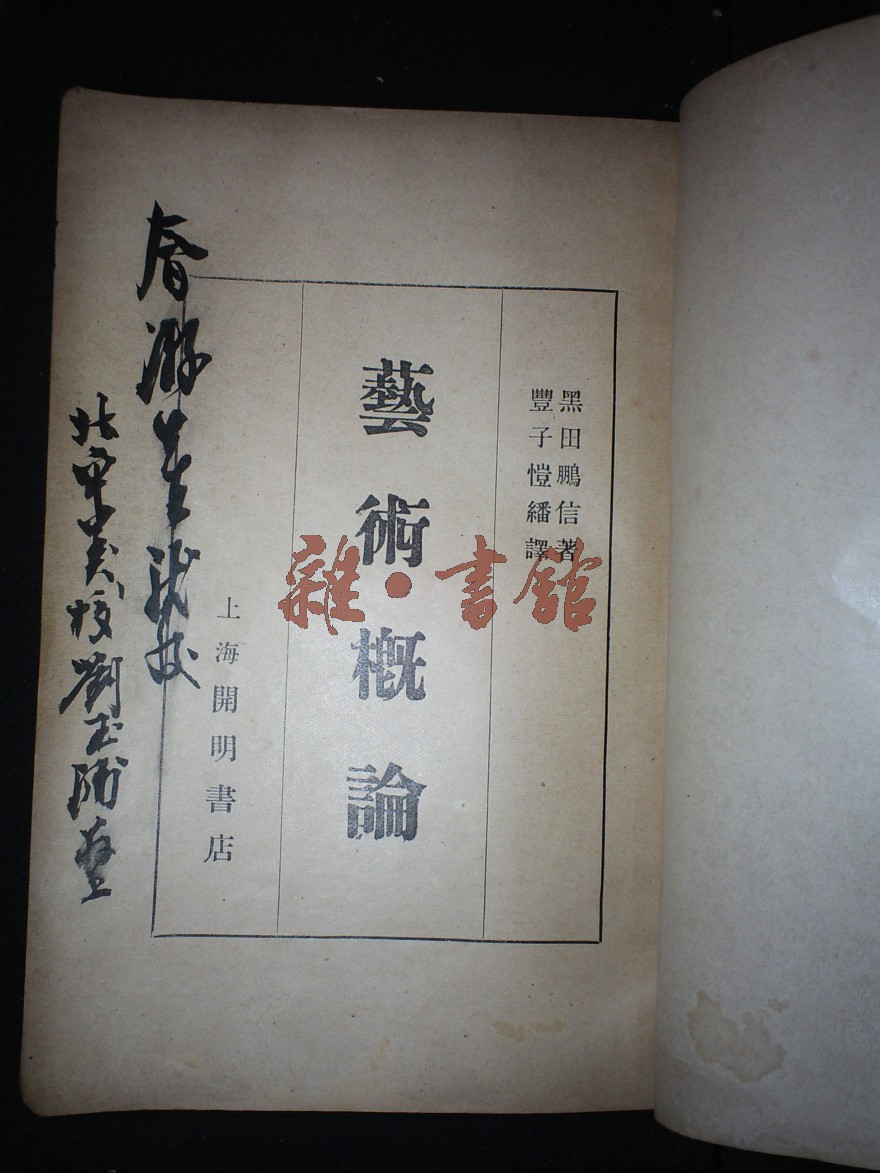 黑田鵬信著
豐子愷繙譯
藝術概論
上海開明書店
春游先生
北平美校劉玉浦
雜·書館